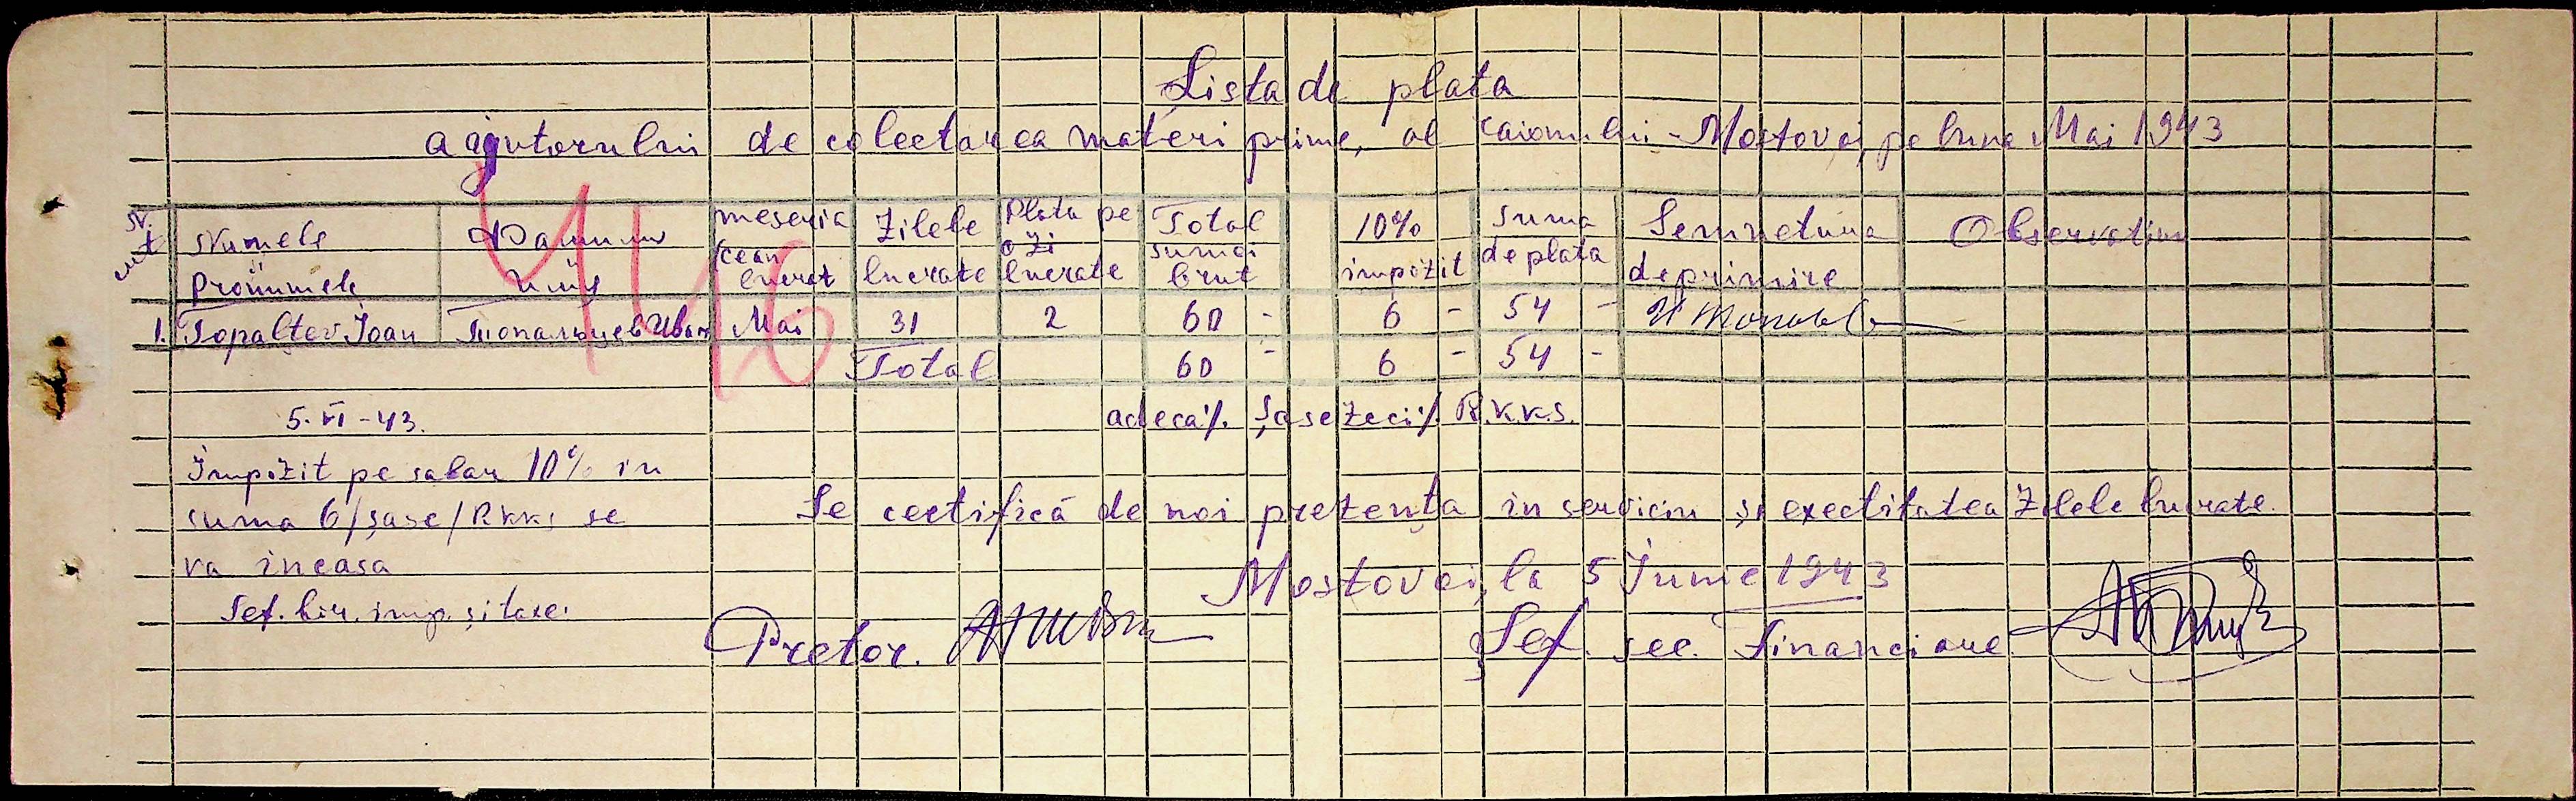 Lista de plata
a ajutorului de colectarea materi prime, al raionului - Mostovoi, pe luna Mai 1943
Nr. crt
Numele Pronumele
meseria cean lucrat
Zilele lucrate
Plata pe o zi lucrate
Total sumei brut
10% impozit
suma de plata
Semnetura de primire
Observatiuni
1. Topalțev Joan Топальцев Иван Mai 31 2 60 - 6 - 54 -
Total 60 - 6 - 54 -
116
adeca /. șasezeci /. R.k.k.s.
5. VI - 43.
Impozit pe salar 10% in
suma 6 /șase/ R.k.k.s se
va incasa
Șef. bir. imp. și taxe:
Se certifică de noi prezența in serviciu și exectitatea Zilele lucrate.
Mostovoi, la 5 Junie 1943
Pretor.
Șef. sec. Financiare